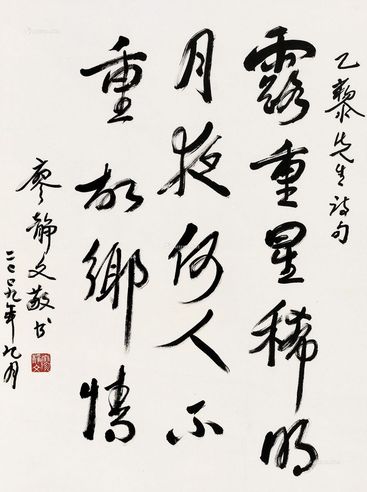 乙黎先生诗句
露重星稀明
月夜何人不
重故鄉情
廖静文敬书
二〇〇九年九月